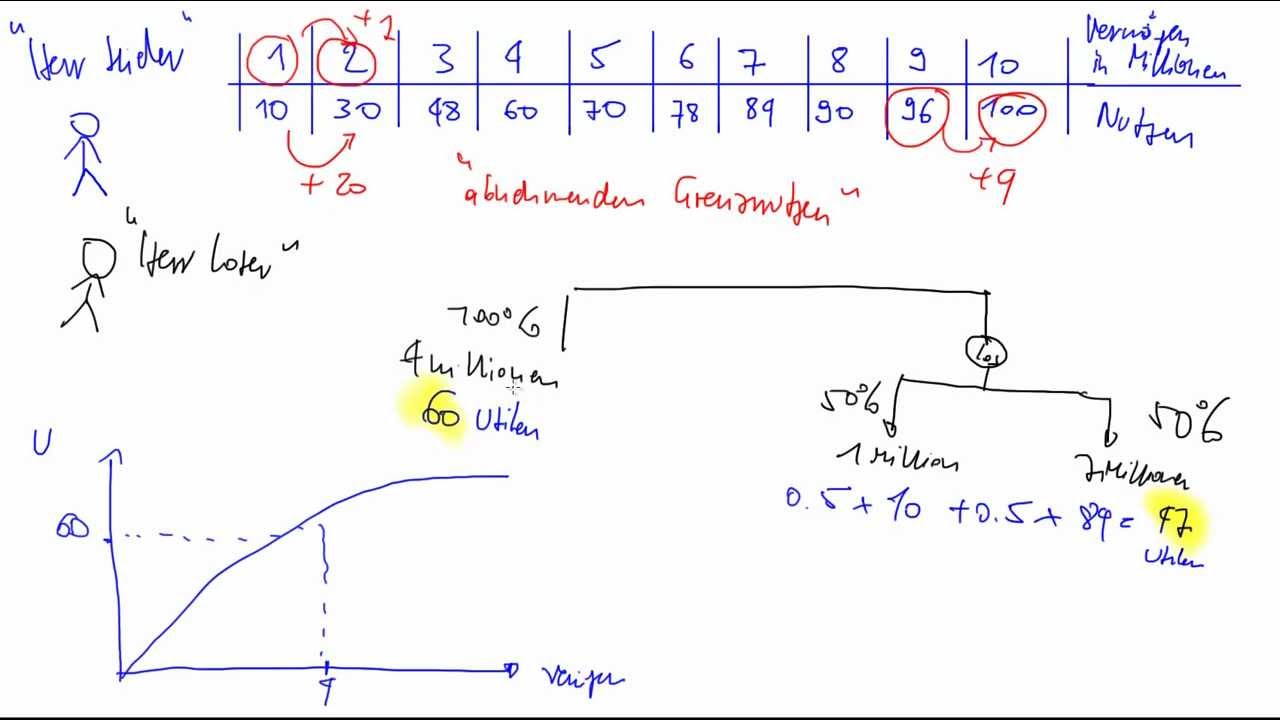 "Herr Sicher"
+1
1 2 3 4 5 6 7 8 9 10 Vermögen in Millionen
10 30 48 60 70 78 89 90 96 100 Nutzen
+20
+9
"abnehmenden Grenznutzen"
"Herr Loser"
100%
4 Millionen
60 Utilen
Los
50%
50%
1 Million
7 Millionen
0.5 + 10 + 0.5 + 89 = 47
Utilen
U
60
4